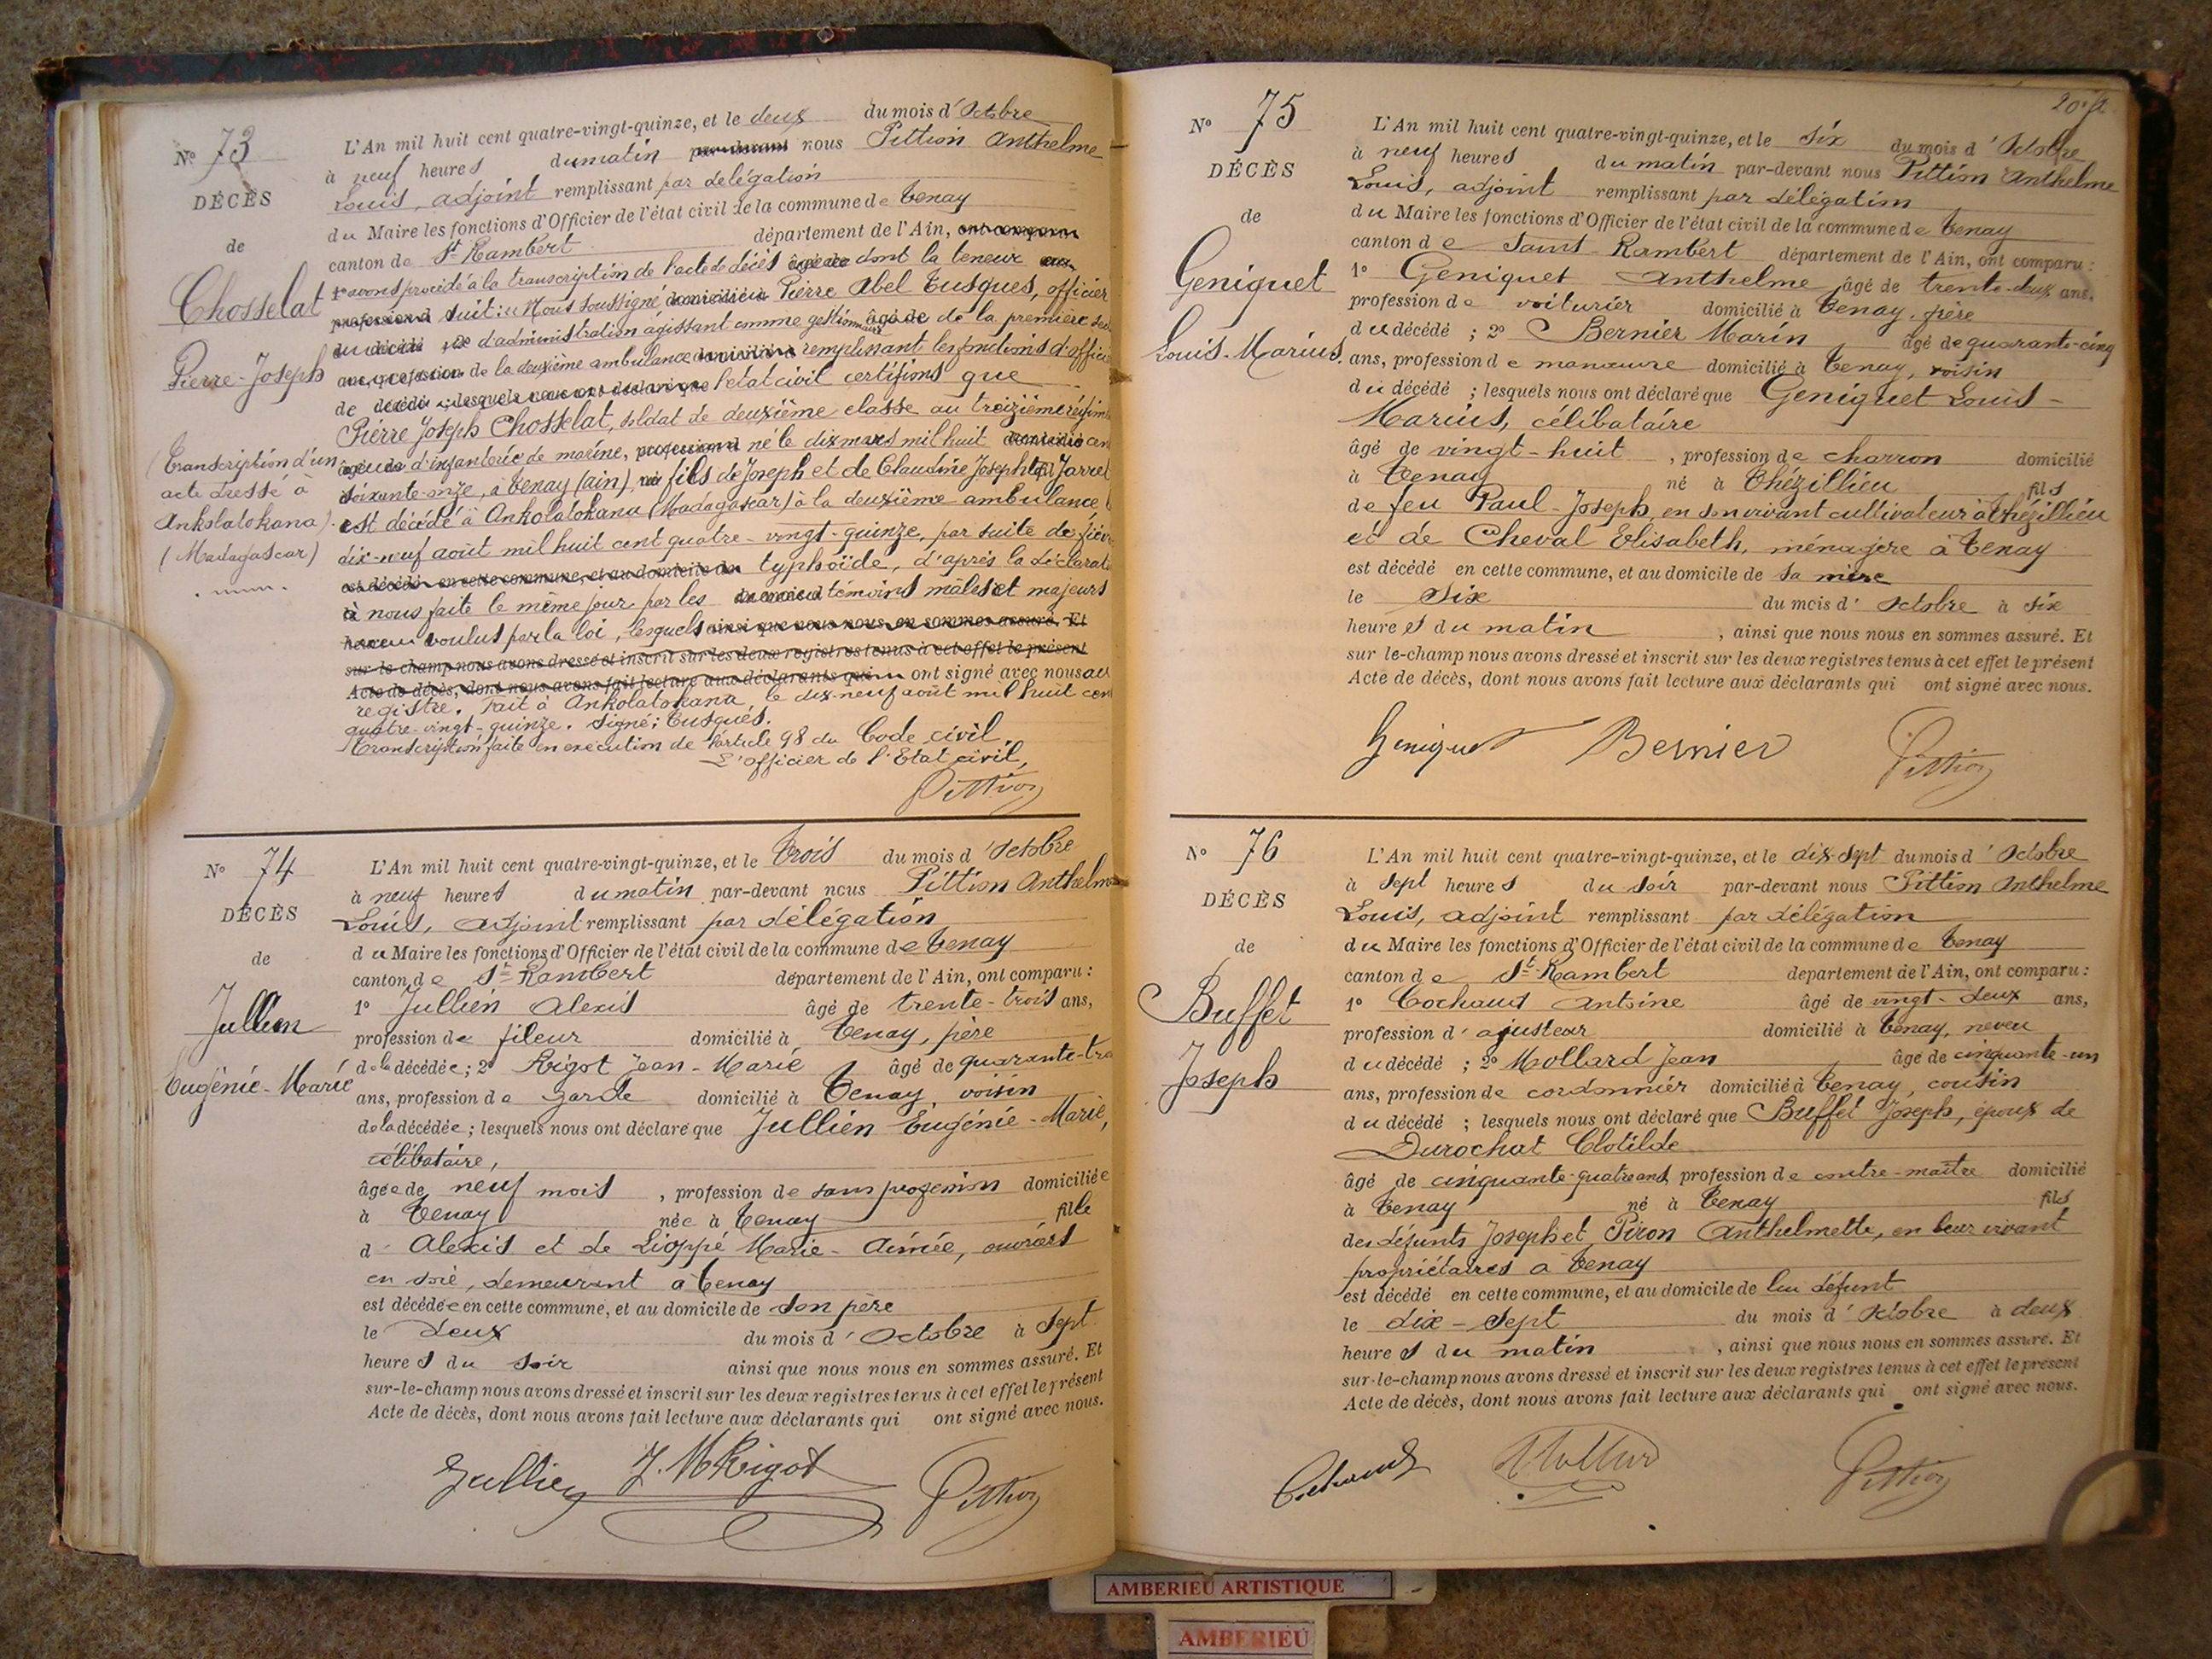 Nº 73
DÉCÈS
de
Chosselat
Pierre-Joseph
(Transcription d'un
acte dressé à
Ankolatokana).
(Madagascar)
L'An mil huit cent quatre-vingt-quinze, et le deux du mois d'Octobre
à neuf heures du matin par-devant nous Pittion Anthelme
Louis, adjoint remplissant par délégation
du Maire les fonctions d'Officier de l'état civil de la commune de Tenay
canton de St Rambert département de l'Ain, ont comparu
1º avons procédé à la transcription de l'acte de décès âgé de dont la teneur
profession d suit: Nous soussigné domicilié à Pierre Abel Tusques, officier
du décédé 2º d'administration agissant comme gestionnaire âgé de de la première
ans, profession de la deuxième ambulance domicilié à remplissant les fonctions d'
de décédé ; lesquels nous ont déclaré que l'état civil certifions que
Pierre Joseph Chosselat, soldat de deuxième classe au treizième
âgé de d'infanterie de marine, profession d né le dix mars mil huit domicilié
soixante-onze, à Tenay (ain), né fils de Joseph et de Claudine Josephte Jarret
est décédé à Ankolatokana (Madagascar) à la deuxième ambulance
dix-neuf août mil huit cent quatre-vingt-quinze, par suite de
est décédé en cette commune, et au domicile de typhoïde, d'après la
à nous faite le même jour par les du mois d témoins mâles et majeurs
heure voulus par la loi, lesquels ainsi que nous nous en sommes assuré. Et
sur-le-champ nous avons dressé et inscrit sur les deux registres tenus à cet effet le présent
Acte de décès, dont nous avons fait lecture aux déclarants qui ont signé avec nous au
registre. Fait à Ankolatokana, le dix-neuf août mil huit cent
quatre-vingt-quinze. Signé: Tusques.
Transcription faite en exécution de l'article 98 du Code civil.
L'officier de l'Etat civil,
Pittion
Nº 74
DÉCÈS
de
Jullien
Eugénie-Marie
L'An mil huit cent quatre-vingt-quinze, et le trois du mois d'Octobre
à neuf heures du matin par-devant nous Pittion Anthelme
Louis, adjoint remplissant par délégation
du Maire les fonctions d'Officier de l'état civil de la commune de Tenay
canton de St Rambert département de l'Ain, ont comparu :
1º Jullien Alexis âgé de trente-trois ans,
profession de fileur domicilié à Tenay, père
de la décédée ; 2º Rigot Jean-Marie âgé de quarante-
ans, profession de garde domicilié à Tenay, voisin
de la décédée ; lesquels nous ont déclaré que Jullien Eugénie-Marie,
célibataire,
âgée de neuf mois , profession de sans profession domiciliée
à Tenay née à Tenay fille
d' Alexis et de Lioppé Marie-Aimée, ouvriers
en soie, demeurant à Tenay
est décédée en cette commune, et au domicile de son père
le deux du mois d'Octobre à sept
heures du soir ainsi que nous nous en sommes assuré. Et
sur-le-champ nous avons dressé et inscrit sur les deux registres tenus à cet effet le présent
Acte de décès, dont nous avons fait lecture aux déclarants qui ont signé avec nous.
Jullien J. M Rigot Pittion
Nº 75
DÉCÈS
de
Geniquet
Louis-Marius.
L'An mil huit cent quatre-vingt-quinze, et le six du mois d'Octobre
à neuf heures du matin par-devant nous Pittion Anthelme
Louis, adjoint remplissant par délégation
du Maire les fonctions d'Officier de l'état civil de la commune de Tenay
canton de Saint-Rambert département de l'Ain, ont comparu :
1º Geniquet Anthelme âgé de trente-deux ans,
profession de voiturier domicilié à Tenay, frère
du décédé ; 2º Bernier Marin âgé de quarante-cinq
ans, profession de manœuvre domicilié à Tenay, voisin
du décédé ; lesquels nous ont déclaré que Geniquet Louis-
Marius, célibataire
âgé de vingt-huit , profession de charron domicilié
à Tenay né à Thézillieu fils
de feu Paul-Joseph, en son vivant cultivateur à Thézillieu
et de Cheval Elisabeth, ménagère à Tenay
est décédé en cette commune, et au domicile de sa mère
le Six du mois d'Octobre à six
heures du matin , ainsi que nous nous en sommes assuré. Et
sur-le-champ nous avons dressé et inscrit sur les deux registres tenus à cet effet le présent
Acte de décès, dont nous avons fait lecture aux déclarants qui ont signé avec nous.
Geniquet Bernier Pittion
Nº 76
DÉCÈS
de
Buffet
Joseph
L'An mil huit cent quatre-vingt-quinze, et le dix-sept du mois d'Octobre
à sept heures du soir par-devant nous Pittion Anthelme
Louis, adjoint remplissant par délégation
du Maire les fonctions d'Officier de l'état civil de la commune de Tenay
canton de St Rambert département de l'Ain, ont comparu :
1º Cochaud Antoine âgé de vingt-deux ans,
profession d'ajusteur domicilié à Tenay, neveu
du décédé ; 2º Mollard Jean âgé de cinquante-un
ans, profession de cordonnier domicilié à Tenay, cousin
du décédé ; lesquels nous ont déclaré que Buffet Joseph, époux de
Durochat Clotilde
âgé de cinquante-quatre ans, profession de contre-maître domicilié
à Tenay né à Tenay fils
des défunts Joseph et Piron Anthelmette, en leur vivant
propriétaires à Tenay
est décédé en cette commune, et au domicile de lui défunt
le dix-sept du mois d'Octobre à deux
heures du matin , ainsi que nous nous en sommes assuré. Et
sur-le-champ nous avons dressé et inscrit sur les deux registres tenus à cet effet le présent
Acte de décès, dont nous avons fait lecture aux déclarants qui ont signé avec nous.
Cochaud Mollard Pittion
AMBERIEU ARTISTIQUE
AMBERIEU